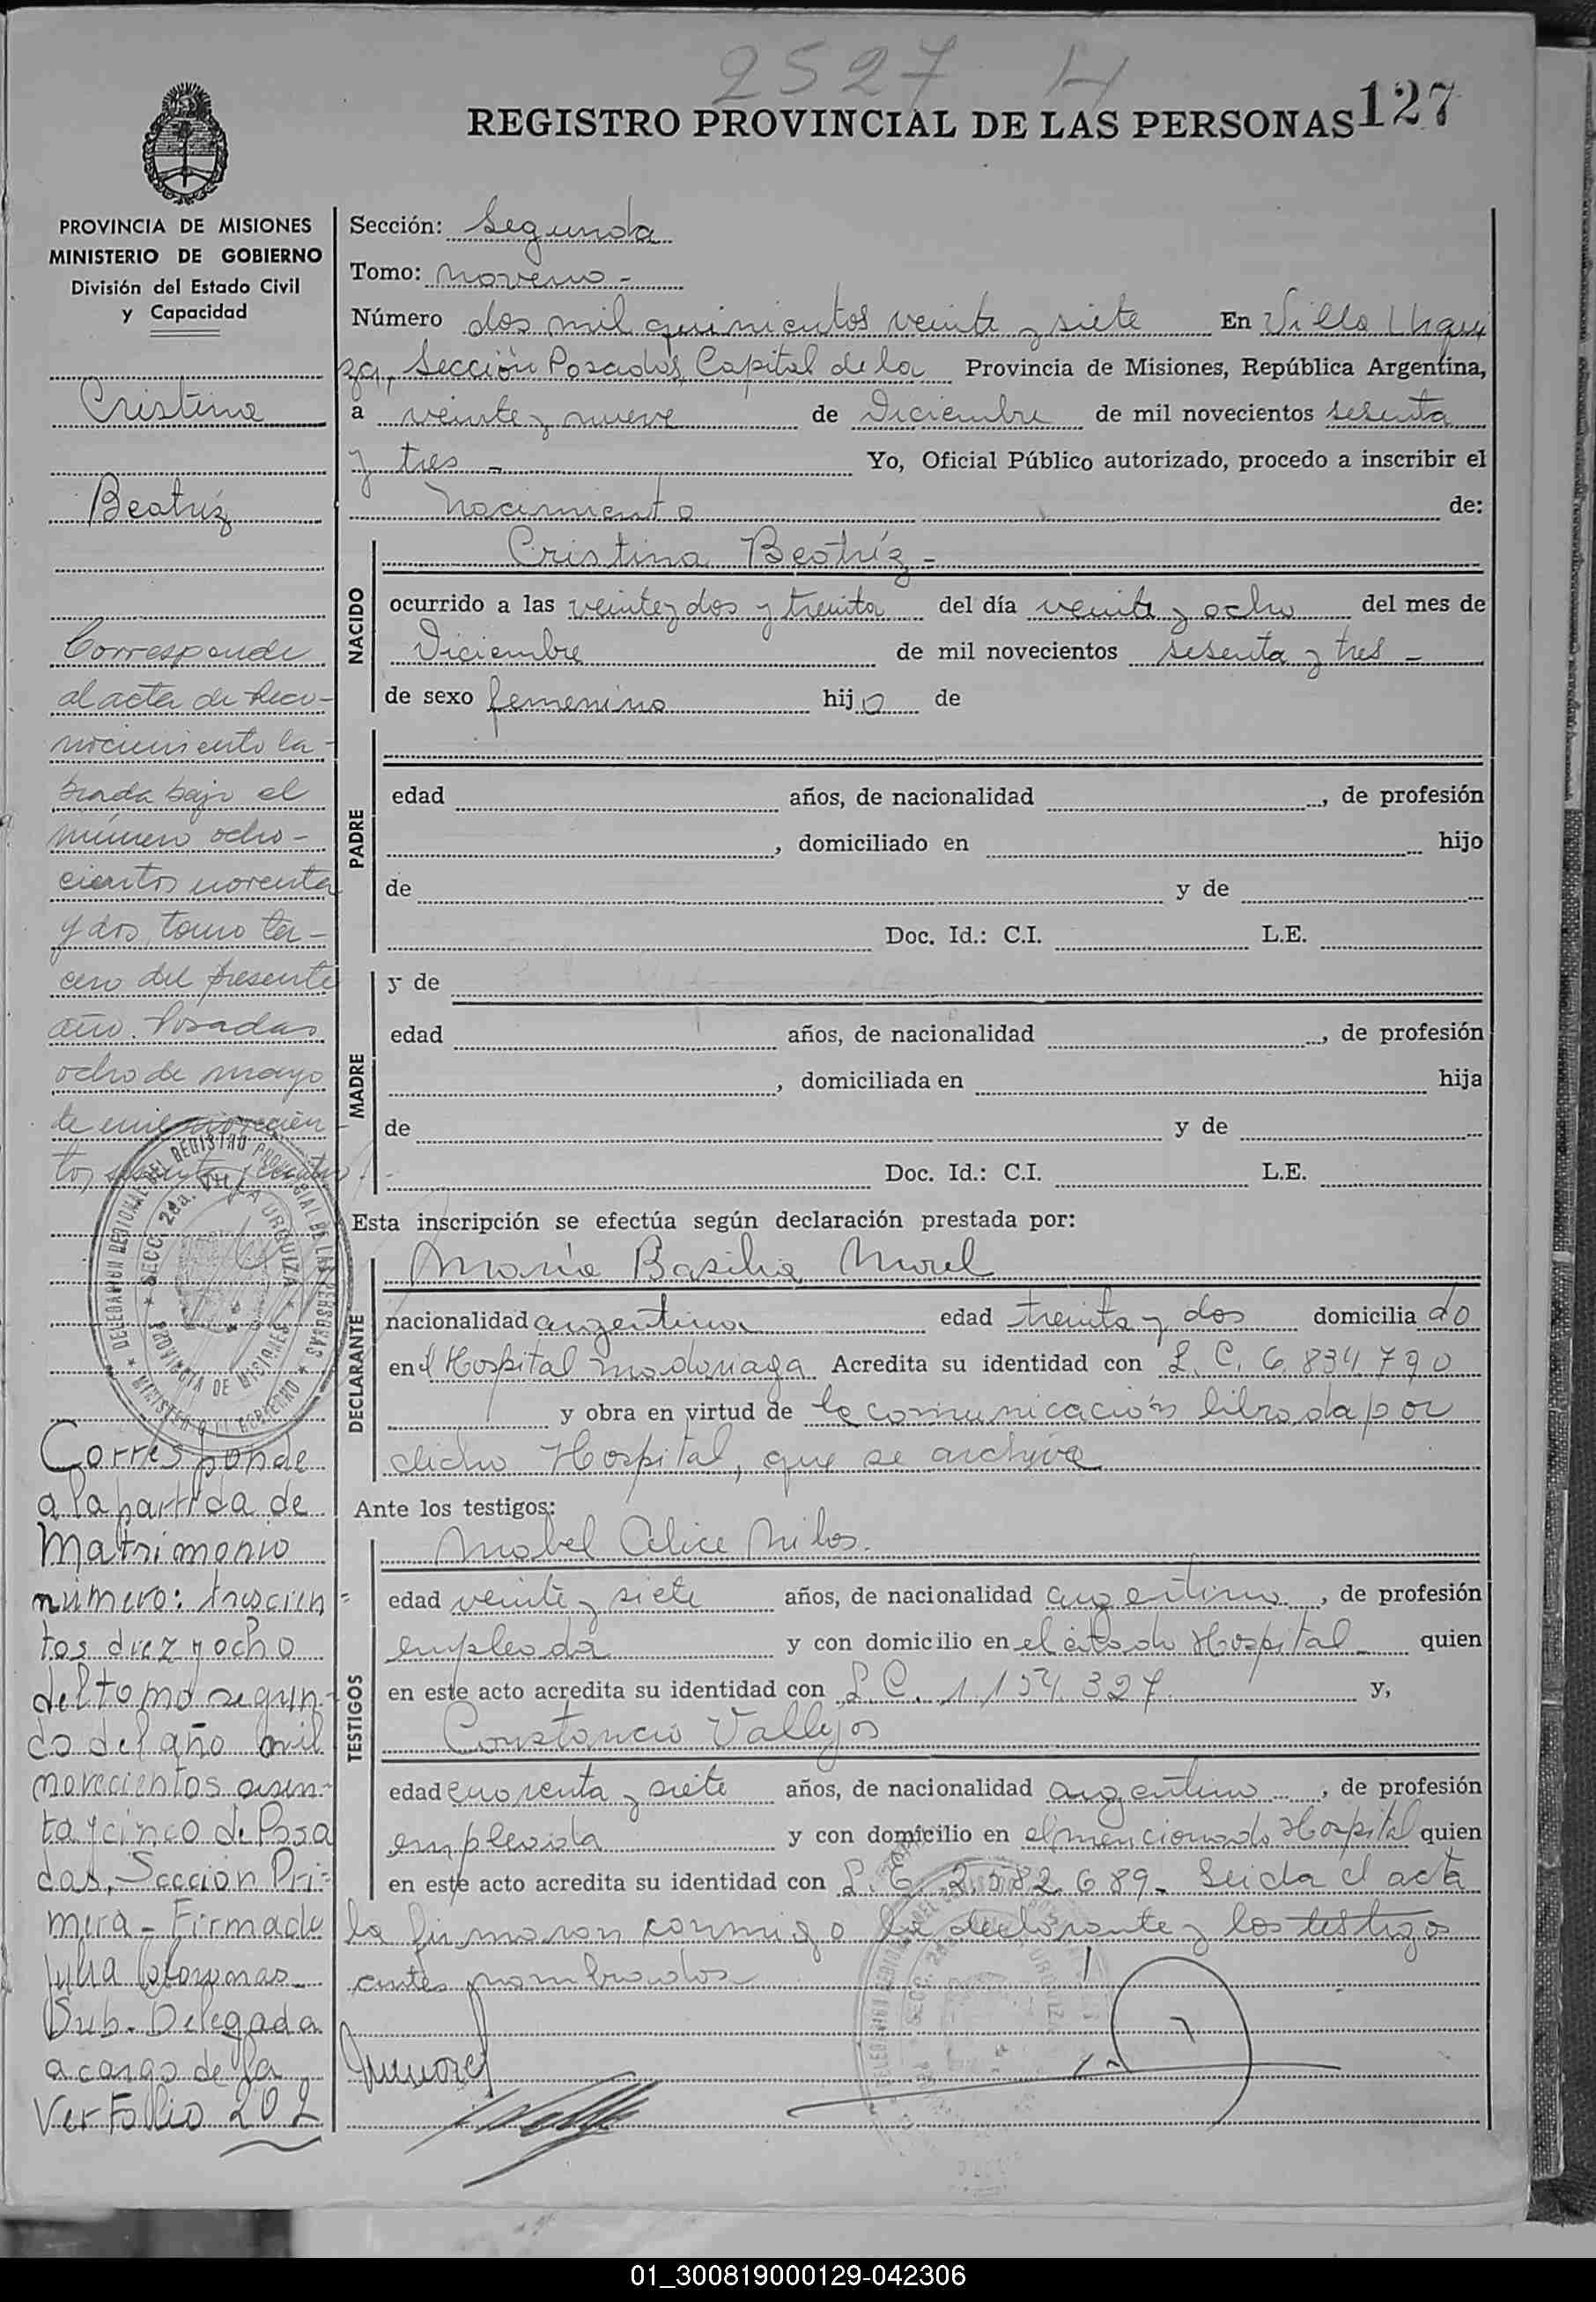 2527 H
REGISTRO PROVINCIAL DE LAS PERSONAS 127
PROVINCIA DE MISIONES
MINISTERIO DE GOBIERNO
División del Estado Civil
y Capacidad
Cristina
Beatríz
Corresponde
al acta de Reco-
nocimiento la-
brada bajo el
número ocho-
cientos noventa
y dos, tomo ter-
cero del presente
año. Posadas
ocho de mayo
de mil novecien-
tos sesenta y cuatro
DELEGACION REGIONAL DEL REGISTRO PROVINCIAL DE LAS PERSONAS
SECC. 2da. VILLA URQUIZA
PROVINCIA DE MISIONES
MINISTERIO DE GOBIERNO
Corresponde
a la partida de
Matrimonio
número: trescien=
tos diez y ocho
del tomo segun-
do del año mil
novecientos
ta y cinco de Posa
das, Sección Pri=
mera - Firmado
Julia
Sub-Delegada
a cargo de la
Ver Folio 202
Sección: Segunda
Tomo: noveno -
Número dos mil quinientos veinte y siete En Villa Urqui
za, Sección Posadas, Capital de la Provincia de Misiones, República Argentina,
a veinte y nueve de Diciembre de mil novecientos sesenta
y tres - Yo, Oficial Público autorizado, procedo a inscribir el
nacimiento de:
NACIDO
Cristina Beatríz -
ocurrido a las veinte y dos y treinta del día veinte y ocho del mes de
Diciembre de mil novecientos sesenta y tres -
de sexo femenino hija de
PADRE
edad años, de nacionalidad , de profesión
, domiciliado en hijo
de y de
Doc. Id.: C.I. L.E.
MADRE
y de
edad años, de nacionalidad , de profesión
, domiciliada en hija
de y de
Doc. Id.: C.I. L.E.
Esta inscripción se efectúa según declaración prestada por:
DECLARANTE
María Basilia Morel
nacionalidad argentina edad treinta y dos domicilia do
en el Hospital Madariaga Acredita su identidad con L. C. 6.834.790
y obra en virtud de la comunicación librada por
dicho Hospital, que se archiva
Ante los testigos:
TESTIGOS
Mabel Alice
edad veinte y siete años, de nacionalidad argentina , de profesión
empleada y con domicilio en el citado Hospital quien
en este acto acredita su identidad con L.C. 1.154.327 y,
Constancio Vallejos
edad cuarenta y siete años, de nacionalidad argentino , de profesión
empleado y con domicilio en el mencionado Hospital quien
en este acto acredita su identidad con L.E. 2.582.689 - Leida el acta
la firmaron conmigo la declarante y los testigos
antes nombrados
01_300819000129-042306